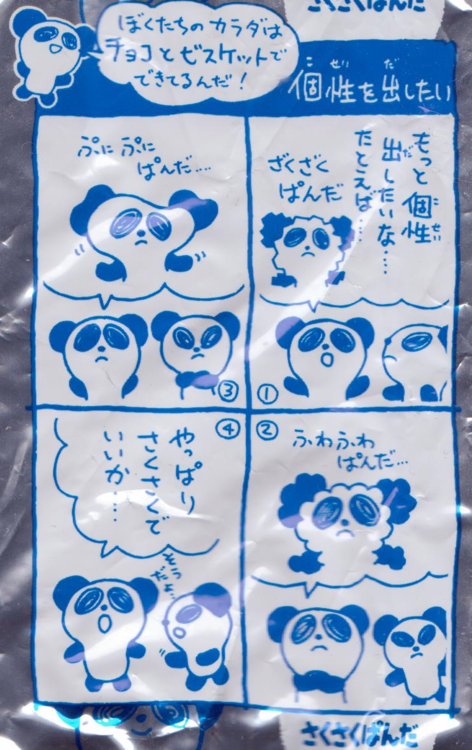 さくさくぱんだ
ぼくたちのカラダは
チョコとビスケットで
できてるんだ!
個性を出したい
こせいだ
もっと個性
出したいな……
たとえば……
こせい
だ
ざくざく
ぱんだ
①
②
ふわふわ
ぱんだ…
ぷにぷに
ぱんだ……
③
④
やっぱり
さくさくで
いいか……
そう
だよ…
さくさくぱんだ